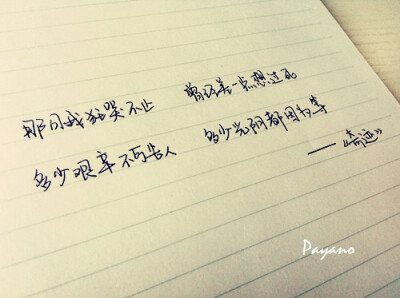 那日我狂哭不止 曾经差一点想过死
多少艰辛不可告人 多少光阴都因为等
——《奇迹》
Payano